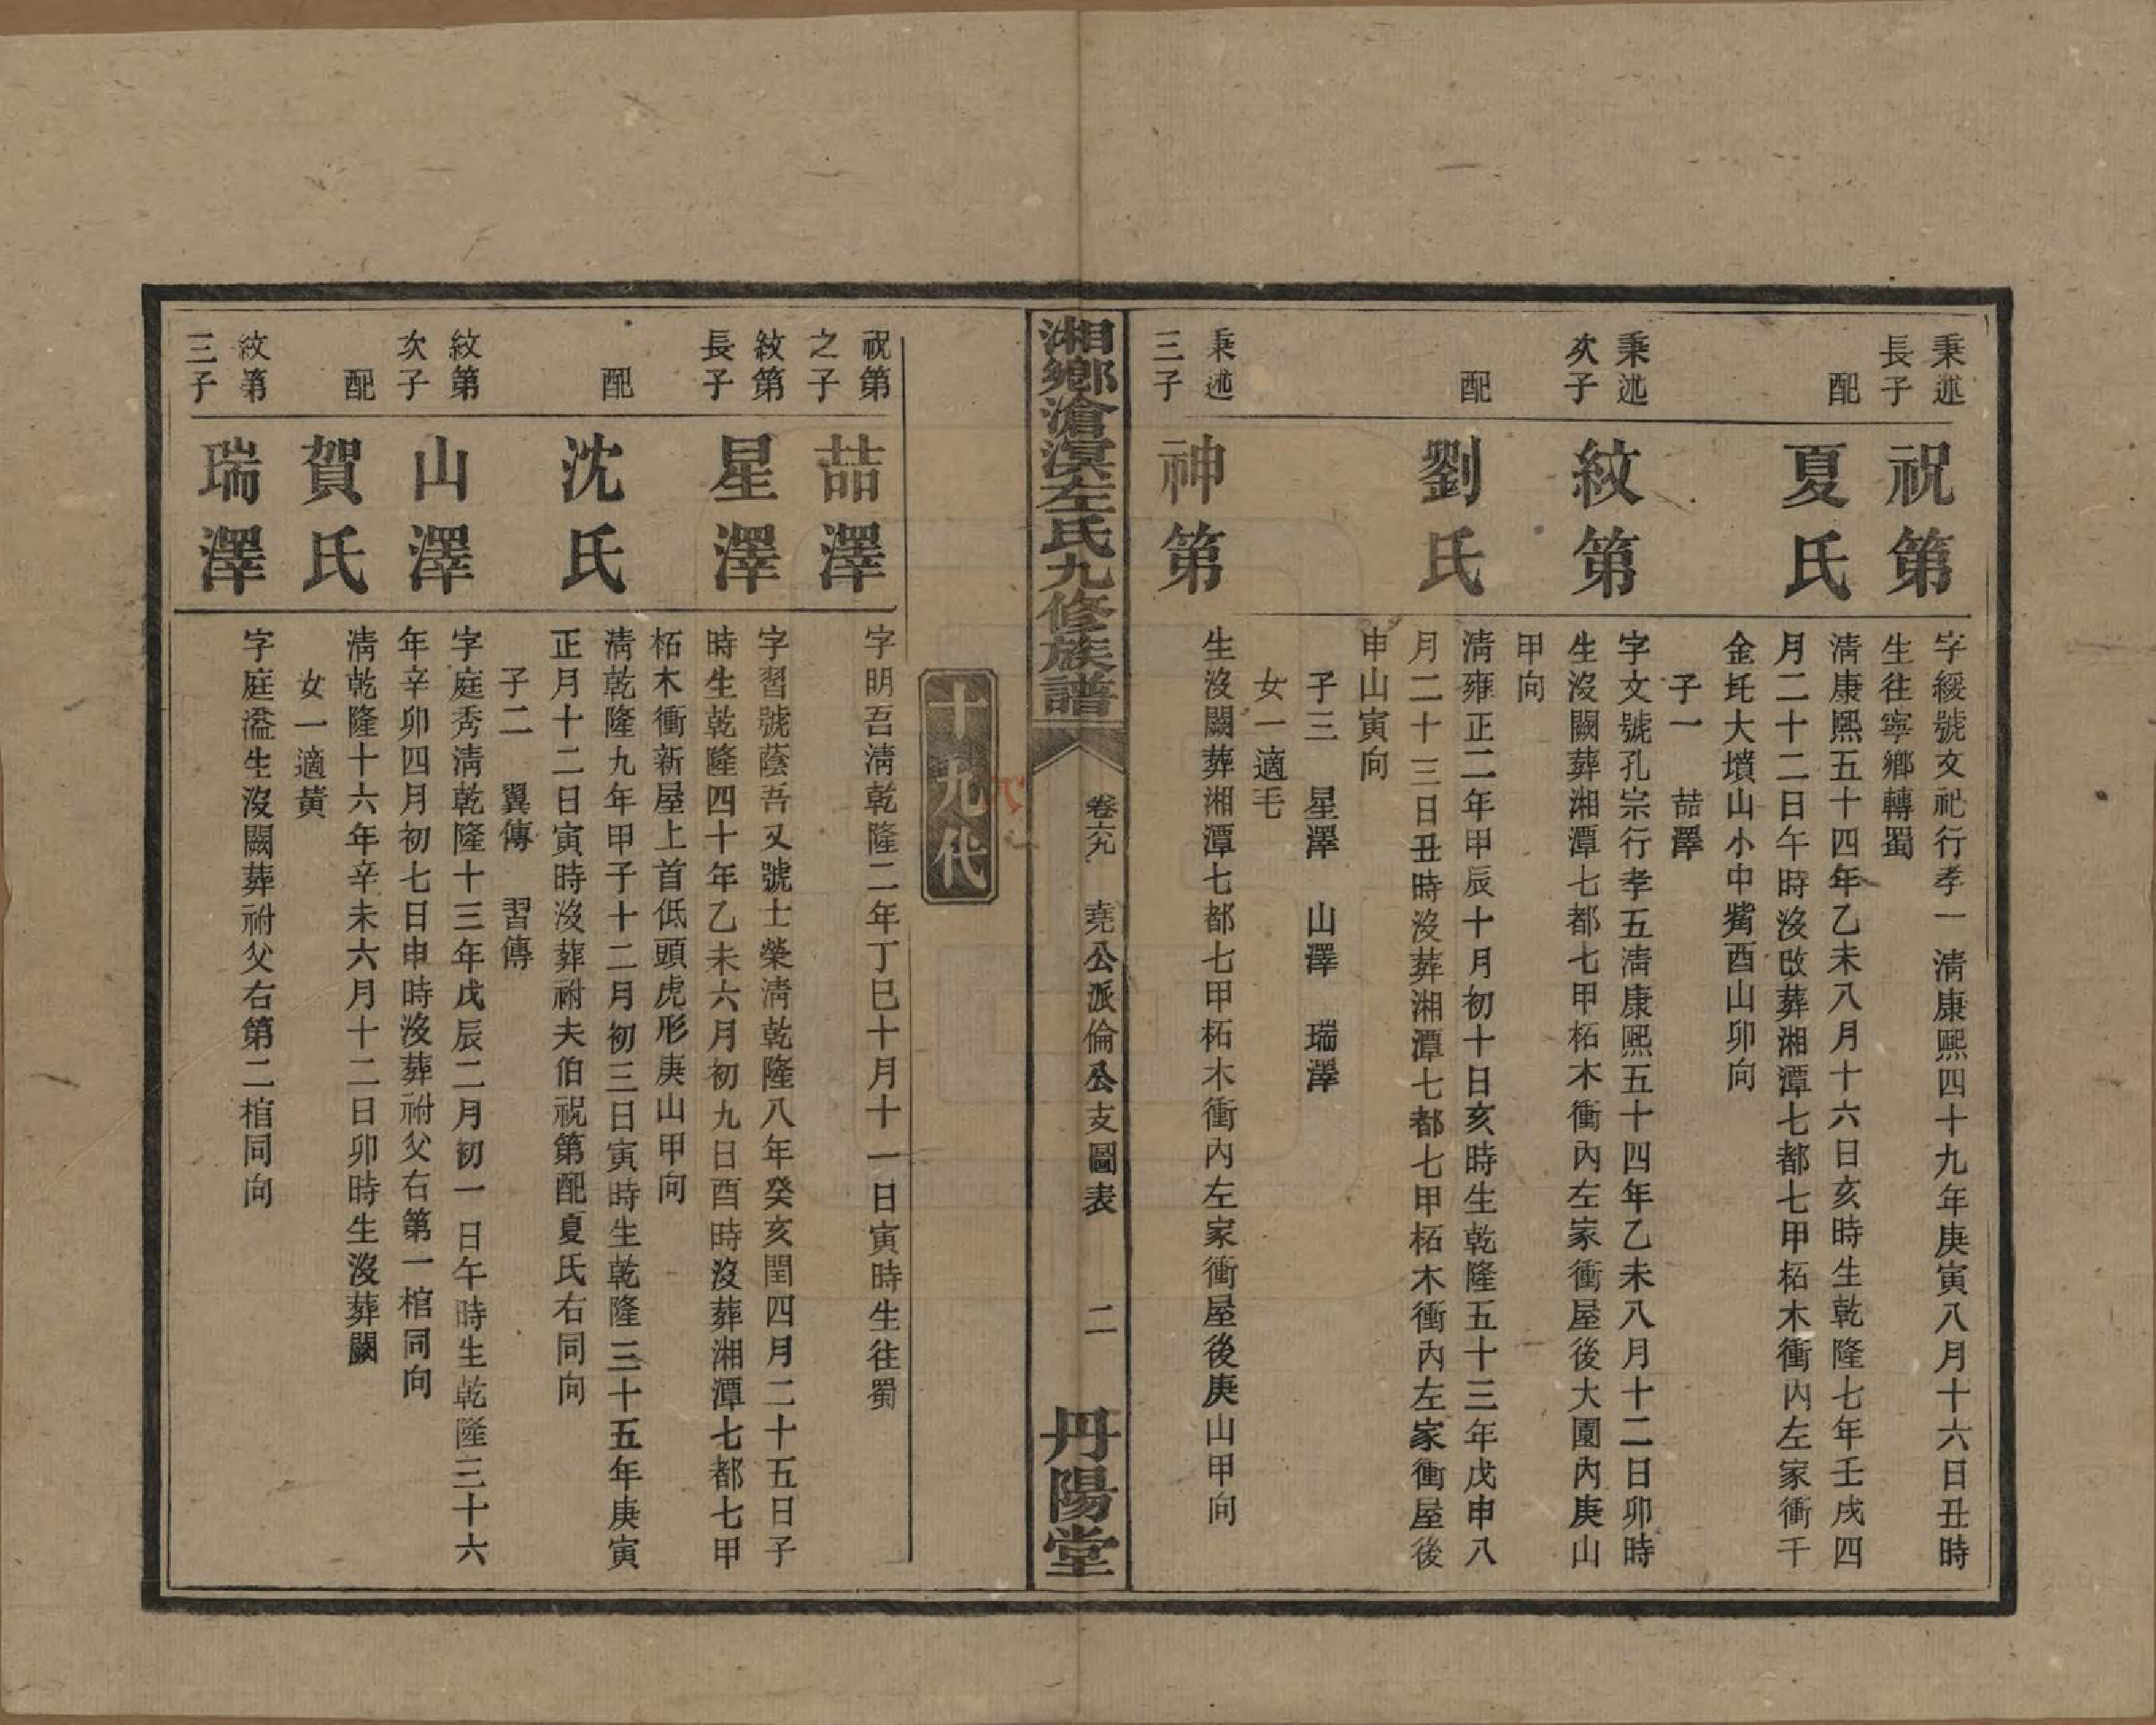 秉述
長子
祝第
字綬號文祀行孝一 清康熙四十九年庚寅八月十六日丑時
生往寧鄉轉蜀
配
夏氏
清康熙五十四年乙未八月十六日亥時生乾隆七年壬戌四
月二十二日午時沒改葬湘潭七都七甲柘木衝內左家衝干
金圫大墳山小中嘴酉山卯向
子一 喆澤
秉述
次子
紋第
字文號孔宗行孝五清康熙五十四年乙未八月十二日卯時
生沒闕葬湘潭七都七甲柘木衝內左家衝屋後大園內庚山
甲向
配
劉氏
清雍正二年甲辰十月初十日亥時生乾隆五十三年戊申八
月二十三日丑時沒葬湘潭七都七甲柘木衝內左家衝屋後
申山寅向
子三 星澤 山澤 瑞澤
女一適毛
秉述
三子
神第
生沒闕葬湘潭七都七甲柘木衝內左家衝屋後庚山甲向
湘鄉滄溟左氏九修族譜
卷六九 堯公派倫公支圖表 二
丹陽堂
十九代
祝第
之子
喆澤
字明吾清乾隆二年丁巳十月十一日寅時生往蜀
紋第
長子
星澤
字習號蔭吾又號士榮清乾隆八年癸亥閏四月二十五日子
時生乾隆四十年乙未六月初九日酉時沒葬湘潭七都七甲
柘木衝新屋上首低頭虎形庚山甲向
配
沈氏
清乾隆九年甲子十二月初三日寅時生乾隆三十五年庚寅
正月十二日寅時沒葬祔夫伯祝第配夏氏右同向
子二 翼傳 習傳
紋第
次子
山澤
字庭秀清乾隆十三年戊辰二月初一日午時生乾隆三十六
年辛卯四月初七日申時沒葬祔父右第一棺同向
配
賀氏
清乾隆十六年辛未六月十二日卯時生沒葬闕
女一適黃
紋第
三子
瑞澤
字庭溢生沒闕葬祔父右第二棺同向